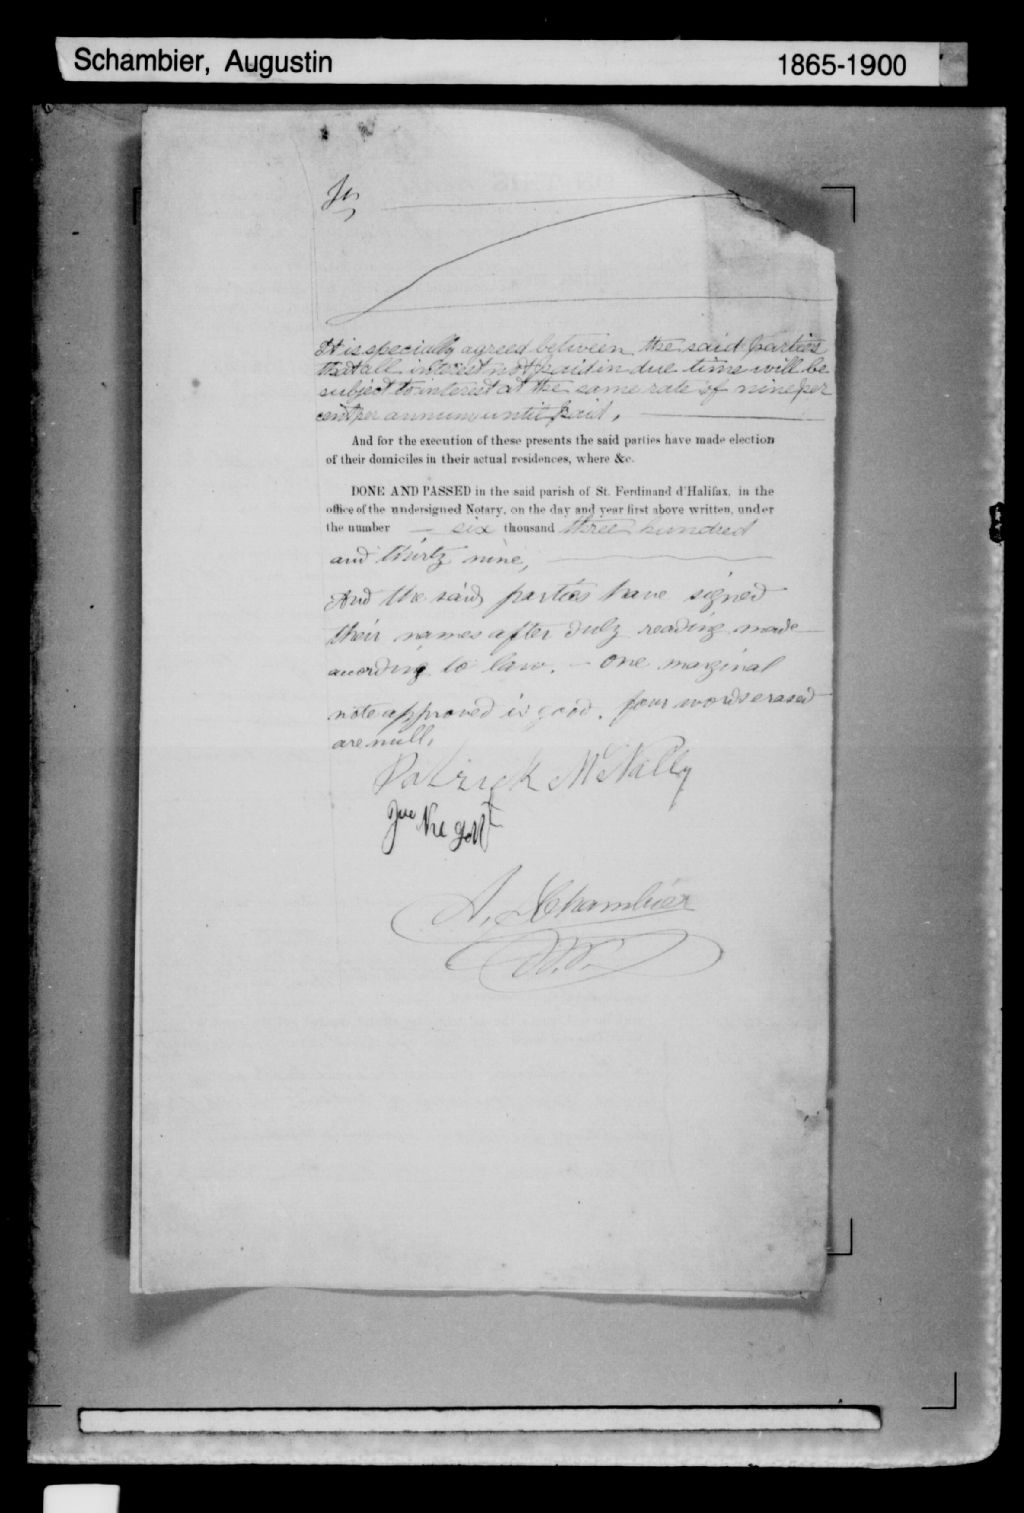 Schambier, Augustin 1865-1900
It is specially agreed between the said parties
that all interest not paid in due time will be
subject to interest at the same rate of nine per
cent per annum until paid.
And for the execution of these presents the said parties have made election
of their domiciles in their actual residences, where &c.
DONE AND PASSED in the said parish of St. Ferdinand d'Halifax, in the
office of the undersigned Notary, on the day and year first above written, under
the number six thousand three hundred
and thirty nine,
And the said parties have signed
their names after duly reading made
according to law. – one marginal
note approved is good. four words erased
are null.
Patrick McNally
A. Schambier
N.P.